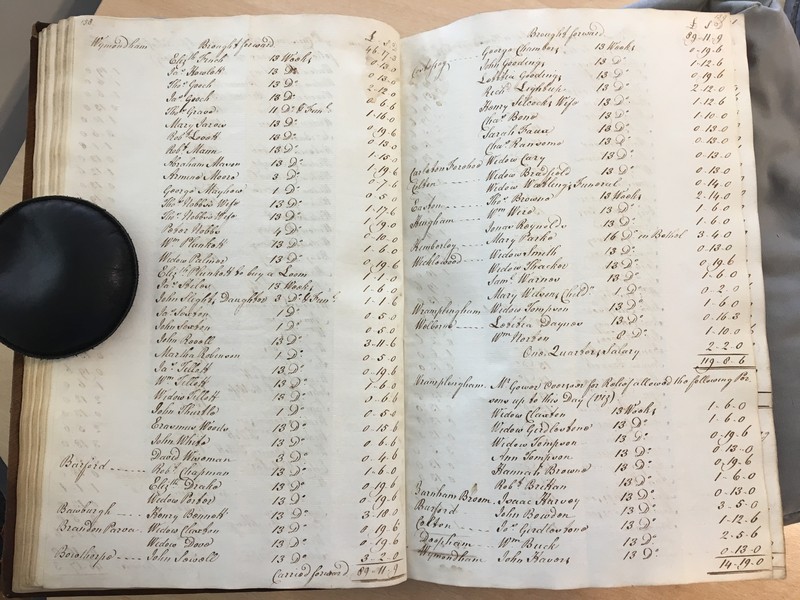 38.
Wymondham Brought forward £ S D
Elizth Finch 13 Weeks 0-13-0
Jas Howlett 13 Do 0-13-0
Thos Gooch 13 Do 2-12-0
Jas Gooch 13 Do
Thos Graves 11 Do & Funl 1-16-0
Mary Jarvis 13 Do 0-19-6
Robt Lovett 13 Do 0-13-0
Robt Mann 13 Do 1-15-0
Abraham Mason 13 Do 1-19-6
Armine Moore 3 Do 0-7-6
George Mayhow 1 Do 0-5-0
Thos Nobbs's Wife 13 Do 1-17-6
Thos Nobbs's Wife 13 Do 0-19-6
Peter Nobbs 4 Do 0-10-0
Wm Plunkett 13 Do 1-6-0
Widow Palmer 13 Do 0-19-6
Elizth Plunkett to buy a Loom
Jas Steloe 13 Weeks 1-6-0
John Slight, Daughter 3 Do & Funl 1-1-6
Jas Sexton 1 Do 0-5-0
John Sexton 1 Do 0-5-0
John Sovell 13 Do 3-11-6
Martha Robinson 1 Do 0-5-0
Jas Tillett 13 Do 0-19-6
Wm Tillett 13 Do 1-6-0
Widow Tillett 15 Do
John Thirtle 1 Do 0-5-0
Erasmus Woods 13 Do 0-15-6
John White 13 Do 0-6-6
David Wiseman 3 Do 0-4-6
Barford Robt Chapman 13 Do 1-6-0
Elizth Drake 13 Do 0-19-6
Widow Porter 13 Do 0-19-6
Bawburgh Henry Bennett 13 Do 3-18-0
Brandon Parva Widow Claxton 13 Do 0-19-6
Widow Dove 13 Do 0-19-6
Bowthorpe John Sowell 13 Do 3-2-0
Carried forward 89-11-9
Brought forward £ S D
89-11-9
Costessey George Chambers 13 Weeks 0-19-6
John Goodings 13 Do 1-12-6
Loretia Goodings 13 Do 0-19-6
Richd Lighten 13 Do 2-12-0
Henry Silcock's Wife 13 Do 1-12-6
Chas Bono 13 Do 1-10-0
Sarah Faux 13 Do 0-13-0
Chas Ransome 13 Do 0-13-0
Carleton Forehoe Widow Cary 13 Do 0-13-0
Colton Widow Bradfield 13 Do 0-13-0
Widow Watlings Funeral 0-14-0
Easton Thos Browne 13 Weeks 2-14-0
Hingham Wm Wire 13 Do 1-6-0
Jonas Reynolds 13 Do 1-6-0
Kimberley Mary Parke 16 Do in Bethel 3-4-0
Wicklewood Widow Smith 13 Do 0-13-0
Widow Thacker 13 Do 0-19-6
Saml Warnes 13 Do 1-6-0
Mary Wilson's Childn 1 Do 0-2-0
Wramplingham Widow Tompson 13 Do 1-6-0
Welborne Loretia Daynes 13 Do 0-16-3
Wm Norton 8 Do 1-10-0
One Quarters Salary 2-2-0
119-8-6
Wramplingham Mr Gower Overseer for Relief allowed the following Per
sons up to this Day (viz)
Widow Claxton 13 Weeks 1-6-0
Widow Girdlestone 13 Do 1-6-0
Widow Tompson 13 Do 0-19-6
Ann Tompson 13 Do 0-13-0
Hannah Browne 13 Do 0-19-6
Robt Brittan 13 Do 1-6-0
Barnham Broom Isaac Harvey 13 Do 0-13-0
Barford John Bowden 13 Do 3-5-0
Colton Jas Girdlestone 13 Do 1-12-6
Deopham Wm Buck 13 Do 2-5-6
Wymondham John Havers 13 Do 0-13-0
14-19-0